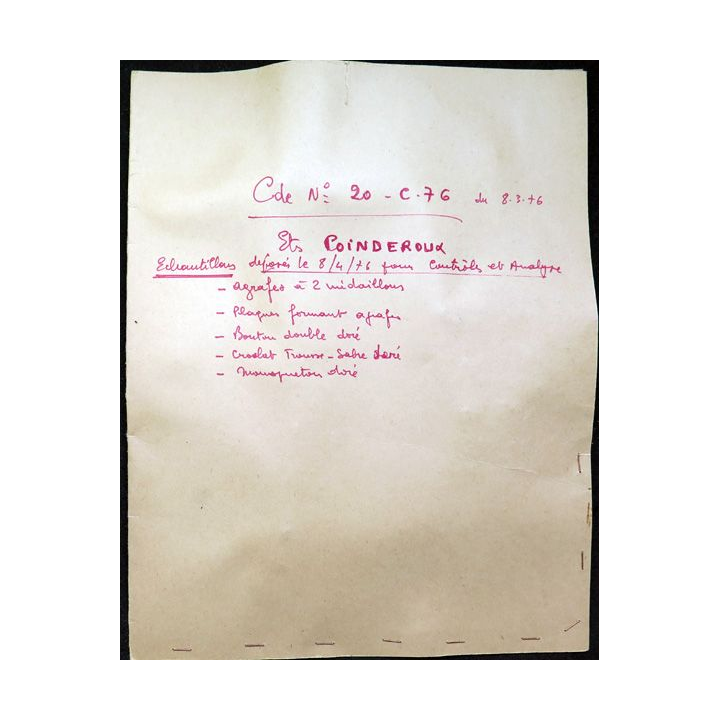 Cde N° 20 - C. 76 du 8.3.76
Ets COINDEROUX
Echantillons déposés le 8/4/76 pour Contrôles et Analyse
- agrafes à 2 médaillons
- Plaques formant agrafes
- Bouton double doré
- Trousse-Sabre doré
- Mousqueton doré